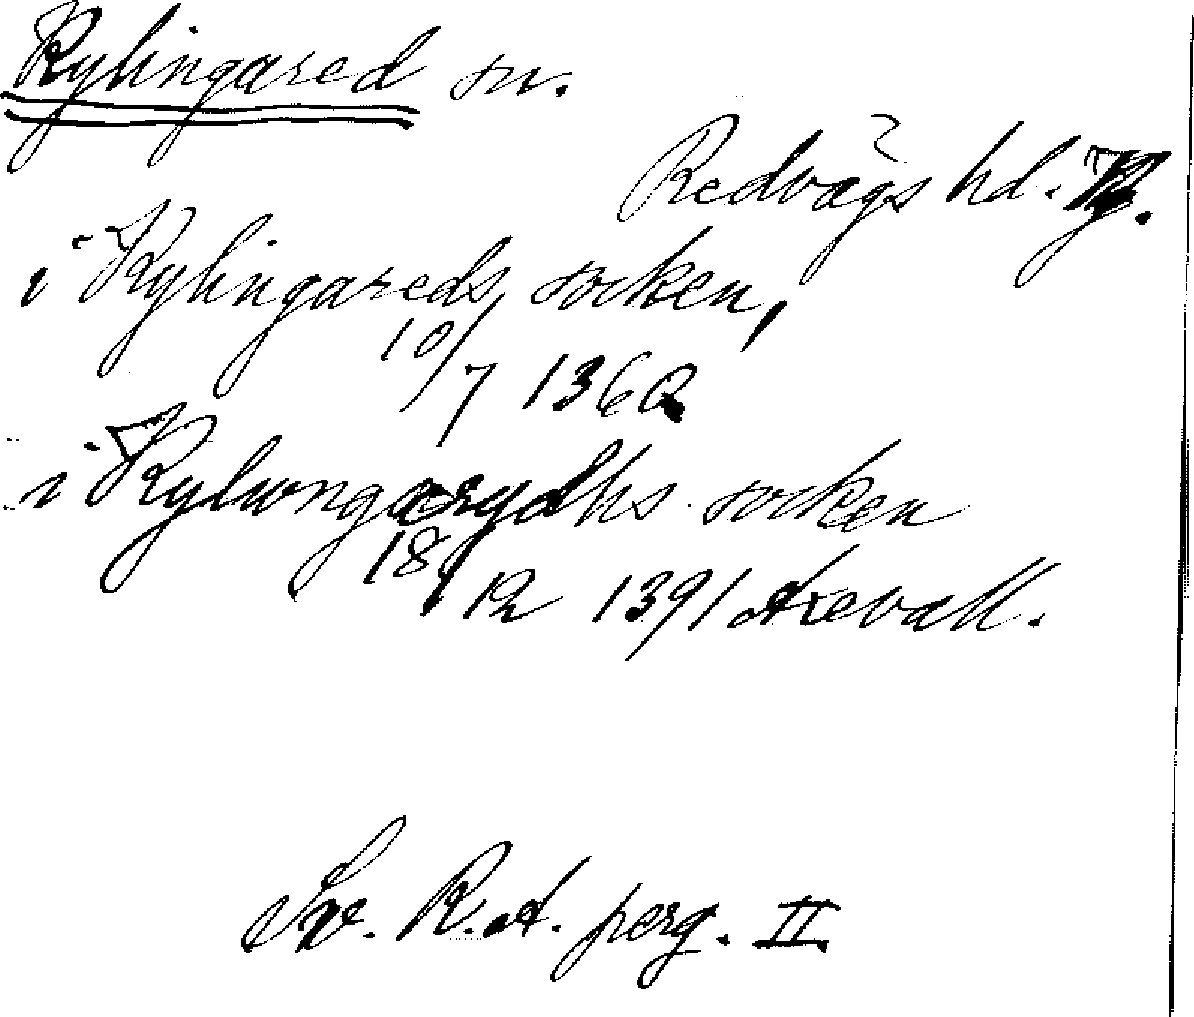 Kylingared sn.
Redvägs hd. Vg.
i Kylingareds socken,
10/7 1360
i Kylwngarydhs socken
18/12 1391 Axevall.
Sv. R.A. perg. II.